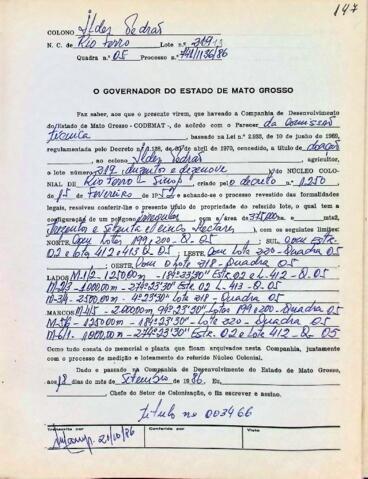 147
COLONO Ildes Pedras
N. C. de Rio Ferro Lote n.º 219
Quadra n.º 05 Processo n.º 741/1136/86
O GOVERNADOR DO ESTADO DE MATO GROSSO
Faz saber, aos que o presente virem, que havendo a Companhia de Desenvolvimento
do Estado de Mato Grosso - CODEMAT -, de acôrdo com o Parecer da Comissão
Técnica, baseado na Lei n.º 2.933, de 10 de junho de 1969,
regulamentada pelo Decreto n.º de abril de 1970, concedido, a título de doação
, ao colono Ildes Pedras, agricultor,
o lote número 219 duzentos e dezenove do NÚCLEO COLO-
NIAL DE Rio Ferro - Sinop, criado pelo decreto n.º 1.250
de 15 Fevereiro de 1952 e achando-se o processo revestido das formalidades
legais, resolveu conferir-lhe o presente título de propriedade do referido lote, o qual tem a
configuração de um polígono irregular com a área de 375,000 m. mts2,
Trezentos e Setenta e Cinco Hectares), com os seguintes limites:
NORTE, Com Lotes 199 e 200 - Q. 05; SUL, Com Estr.
02 e lotes 412 e 413 Q. 05; LESTE, Com Lote 220 - Quadra 05
; OESTE, Com o Lote 218 - Quadra 05
LADOS M-1/2 - 1250.00m - 184º23'30" Estr. 02 e L. 412 - Q. 05
M-2/3 - 1000.00m - 274º23'30" Estr. 02 e L. 413 - Q. 05
M-3/4 - 2500.00m - 4º23'30" Lote 218 - Quadra 05
MARCOS M-4/5 - 2.000.00m 94º23'30" Lotes 199 e 200 - Quadra 05
M-5/6 - 1250.00m - 184º23'30" - Lote 220 - Quadra 05
M-6/1 - 1000.00m - 274º23'30" Estr. 02 e lote 412 - Q. 05
Como tudo consta do memorial e planta que ficam arquivados nesta Companhia, juntamente
com o processo de medição e loteamento do referido Núcleo Colonial.
Dado e passado na Companhia de Desenvolvimento do Estado de Mato Grosso,
aos 18 dias do mês de Setembro de 1986. Eu,
, Chefe do Setor de Colonização, o fiz escrever e assino.
Título nº 003466
Transcrito por Conferido por Visto
21/10/86